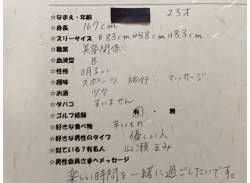 ☆なまえ・年齢 23才
☆身長 167cm
☆スリーサイズ B83cm W58cm H83cm
☆職業 美容関係
☆血液型 B
☆性格 明るい
☆趣味 スポーツ、旅行、マッサージ
☆お酒 少々
☆タバコ すいません
☆ゴルフ経験 有・無
☆好きな食べ物 辛いもの
☆好きな男性のタイプ 優しい人
☆似ている?有名人 山瀬まみ
☆男性会員さまへメッセージ
楽しい時間を一緒に過ごしたいです。